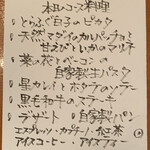 本日のコース料理
とらふぐ白子のピカタ
天然マダイのカルパッチョと
甘えびといかのマリネ
菜の花とベーコンの
自家製生パスタ
星カレイとホタテのソテー
黒毛和牛のステーキ
デザート 自家製パン
エスプレッソ・カプチーノ・紅茶
アイスコーヒー・アイスティー